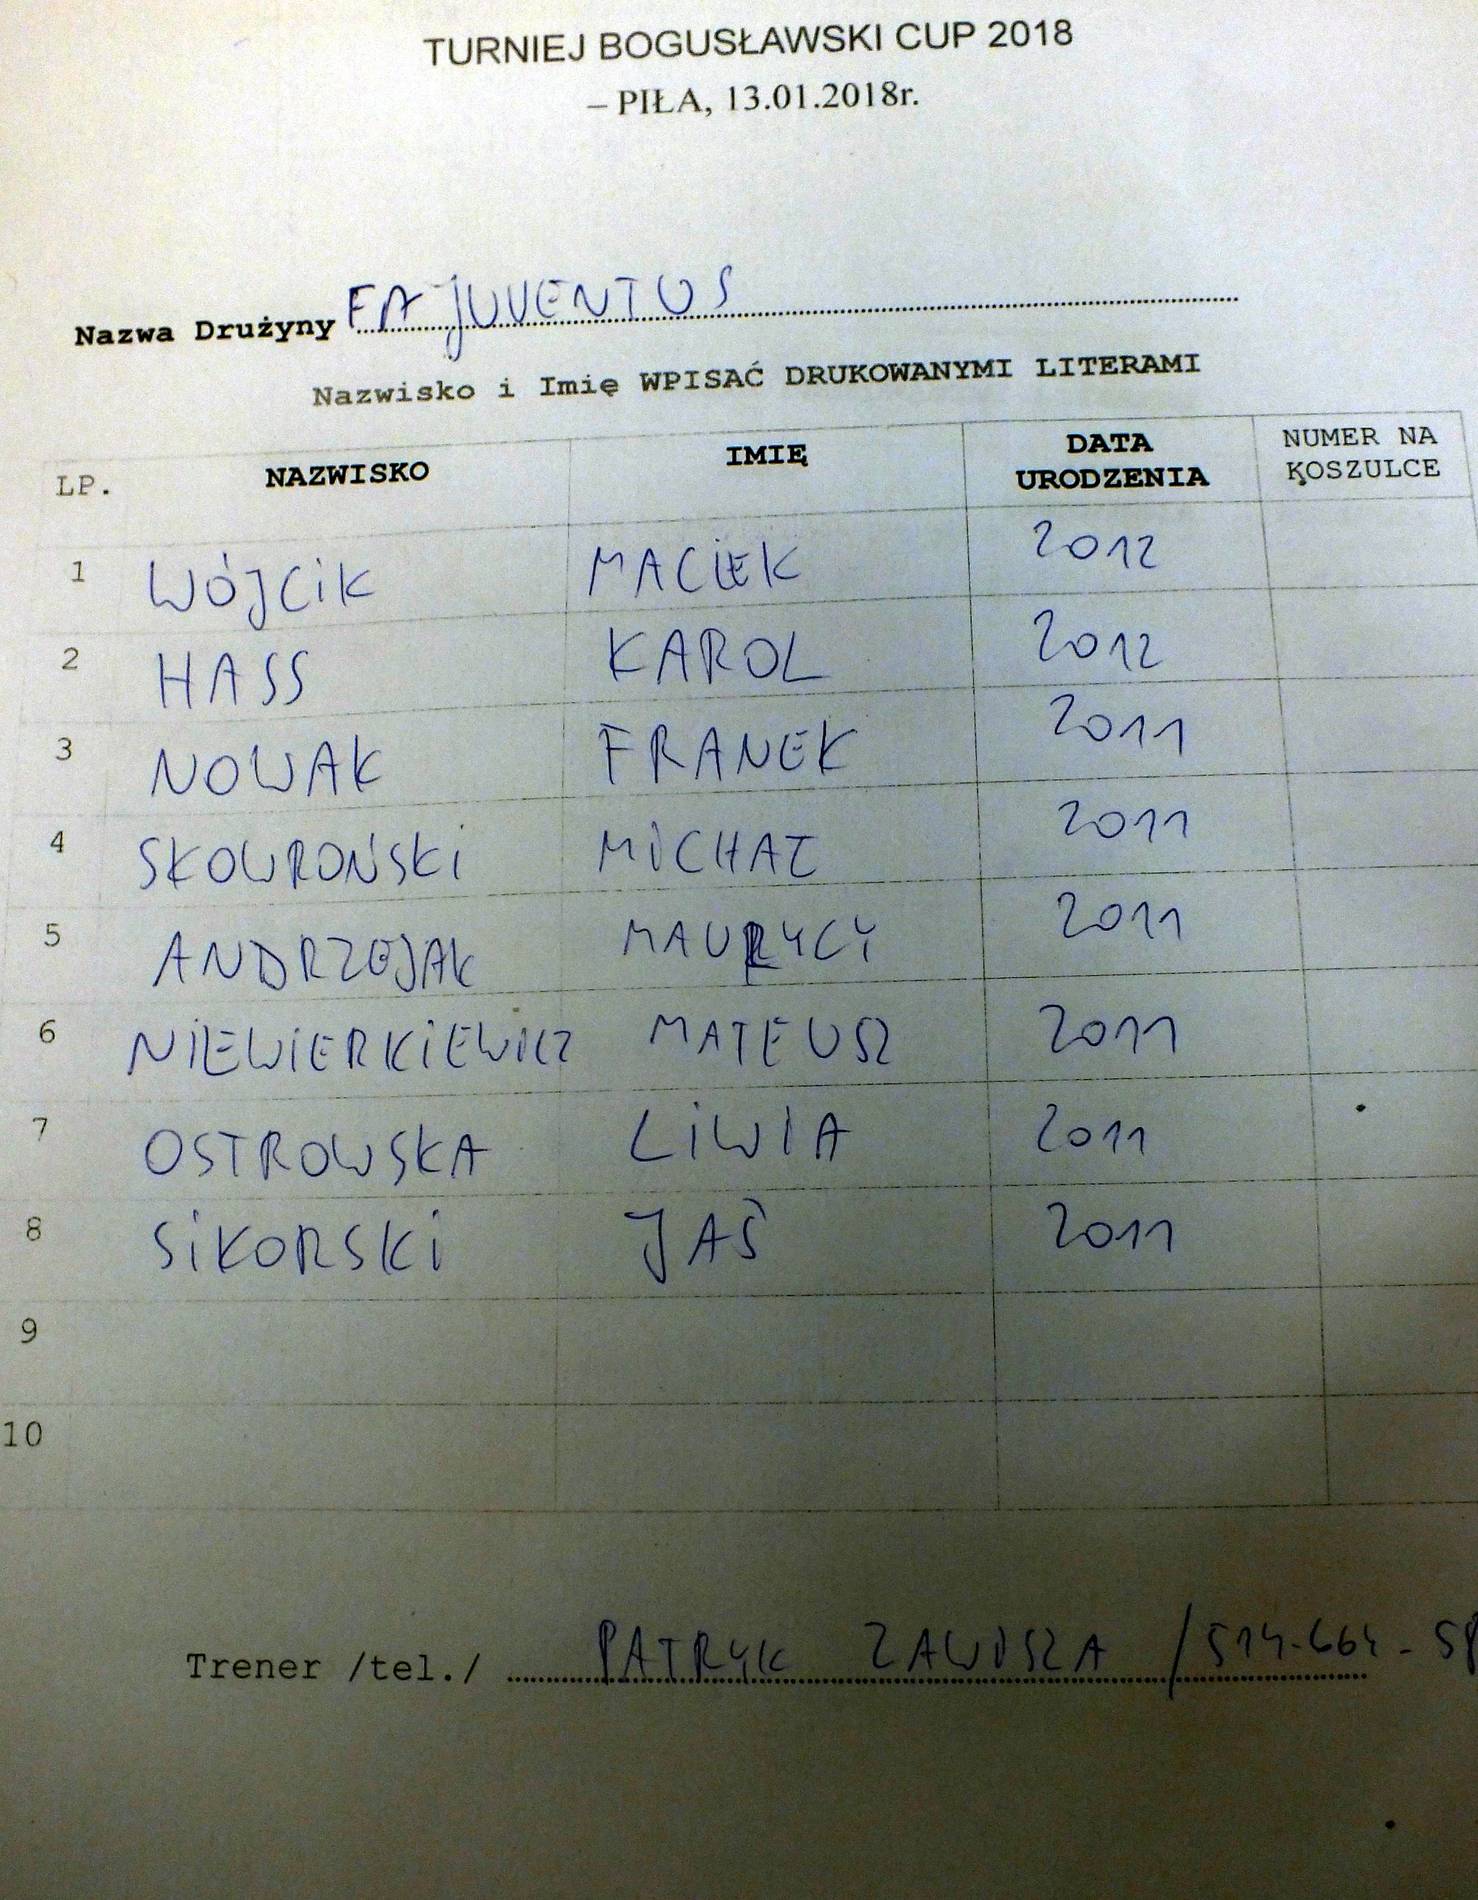 TURNIEJ BOGUSŁAWSKI CUP 2018
– PIŁA, 13.01.2018r.
Nazwa Drużyny FA JUVENTUS
Nazwisko i Imię WPISAĆ DRUKOWANYMI LITERAMI
LP. NAZWISKO IMIĘ DATA URODZENIA NUMER NA KOSZULCE
1 WÓJCIK MACIEK 2012
2 HASS KAROL 2012
3 NOWAK FRANEK 2011
4 SKOWROŃSKI MICHAŁ 2011
5 ANDRZEJAK MAURYCY 2011
6 NIEWIERKIEWICZ MATEUSZ 2011
7 OSTROWSKA LIWIA 2011
8 SIKORSKI JAŚ 2011
9
10
Trener /tel./ PATRYK ZAWISZA / 514-664-